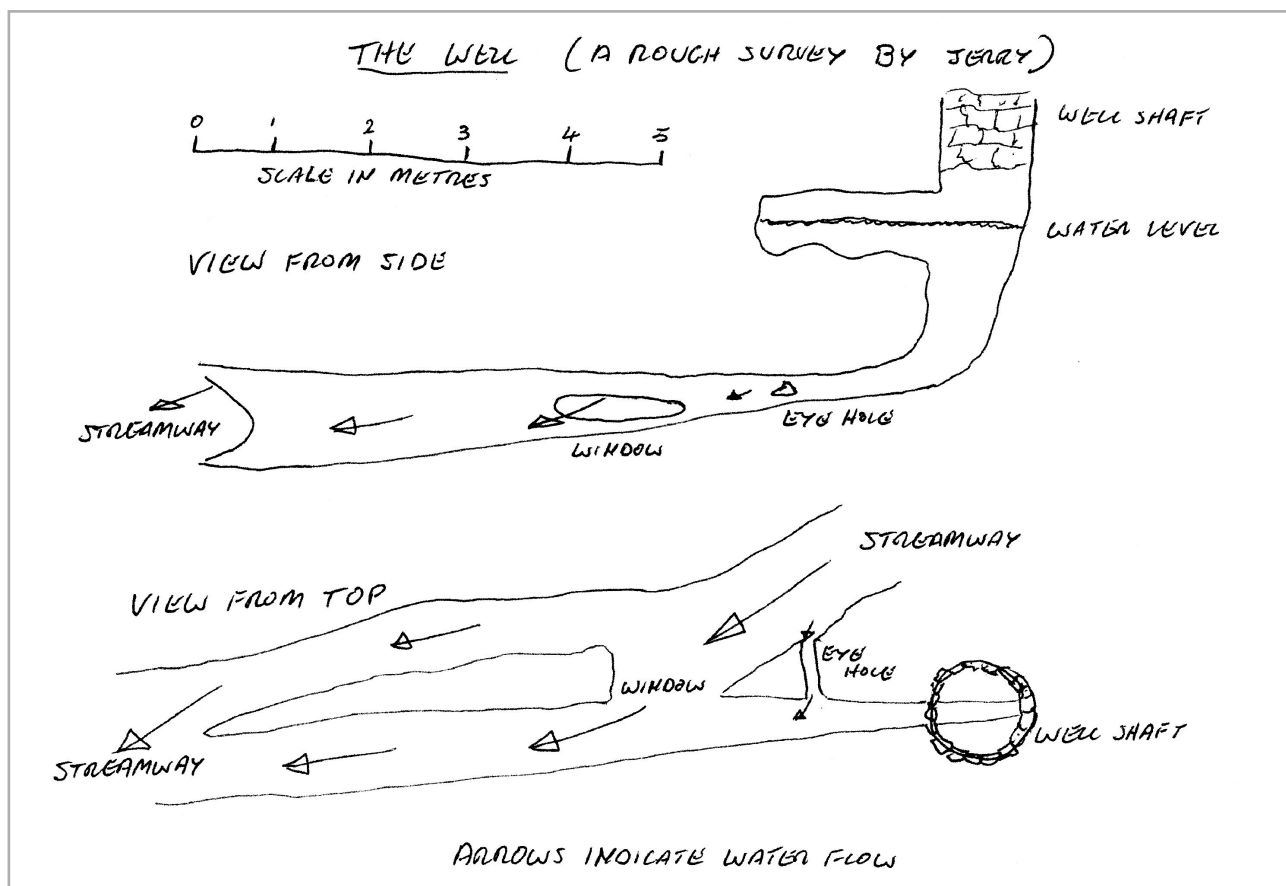 THE WELL (A ROUGH SURVEY BY JERRY)
0 1 2 3 4 5
SCALE IN METRES
WELL SHAFT
WATER LEVEL
VIEW FROM SIDE
STREAMWAY
EYE HOLE
WINDOW
STREAMWAY
VIEW FROM TOP
EYE
HOLE
WINDOW
WELL SHAFT
STREAMWAY
ARROWS INDICATE WATER FLOW